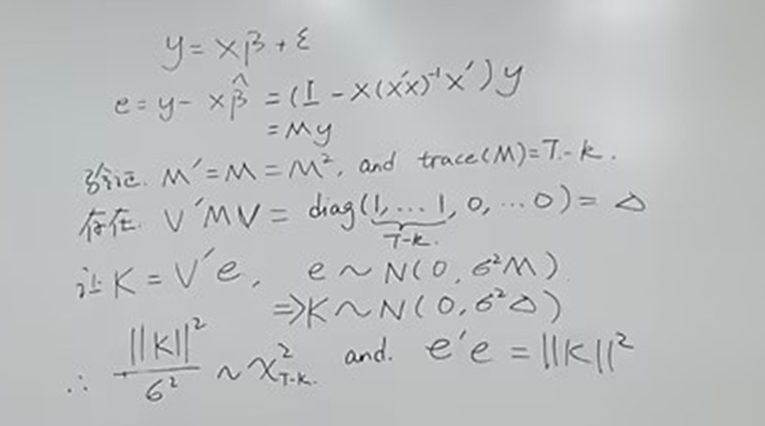 y = xβ + ε
e = y - xβ̂ = (I - x(x'x)⁻¹x')y
= My
验证. M' = M = M², and trace(M) = T-k.
存在. V'MV = diag(1, … 1, 0, … 0) = Δ
T-k.
让 K = V'e, e ~ N(0, 6²M)
⇒ K ~ N(0, 6²Δ)
∴ ||K||² / 6² ~ χ²_T-k. and. e'e = ||K||²